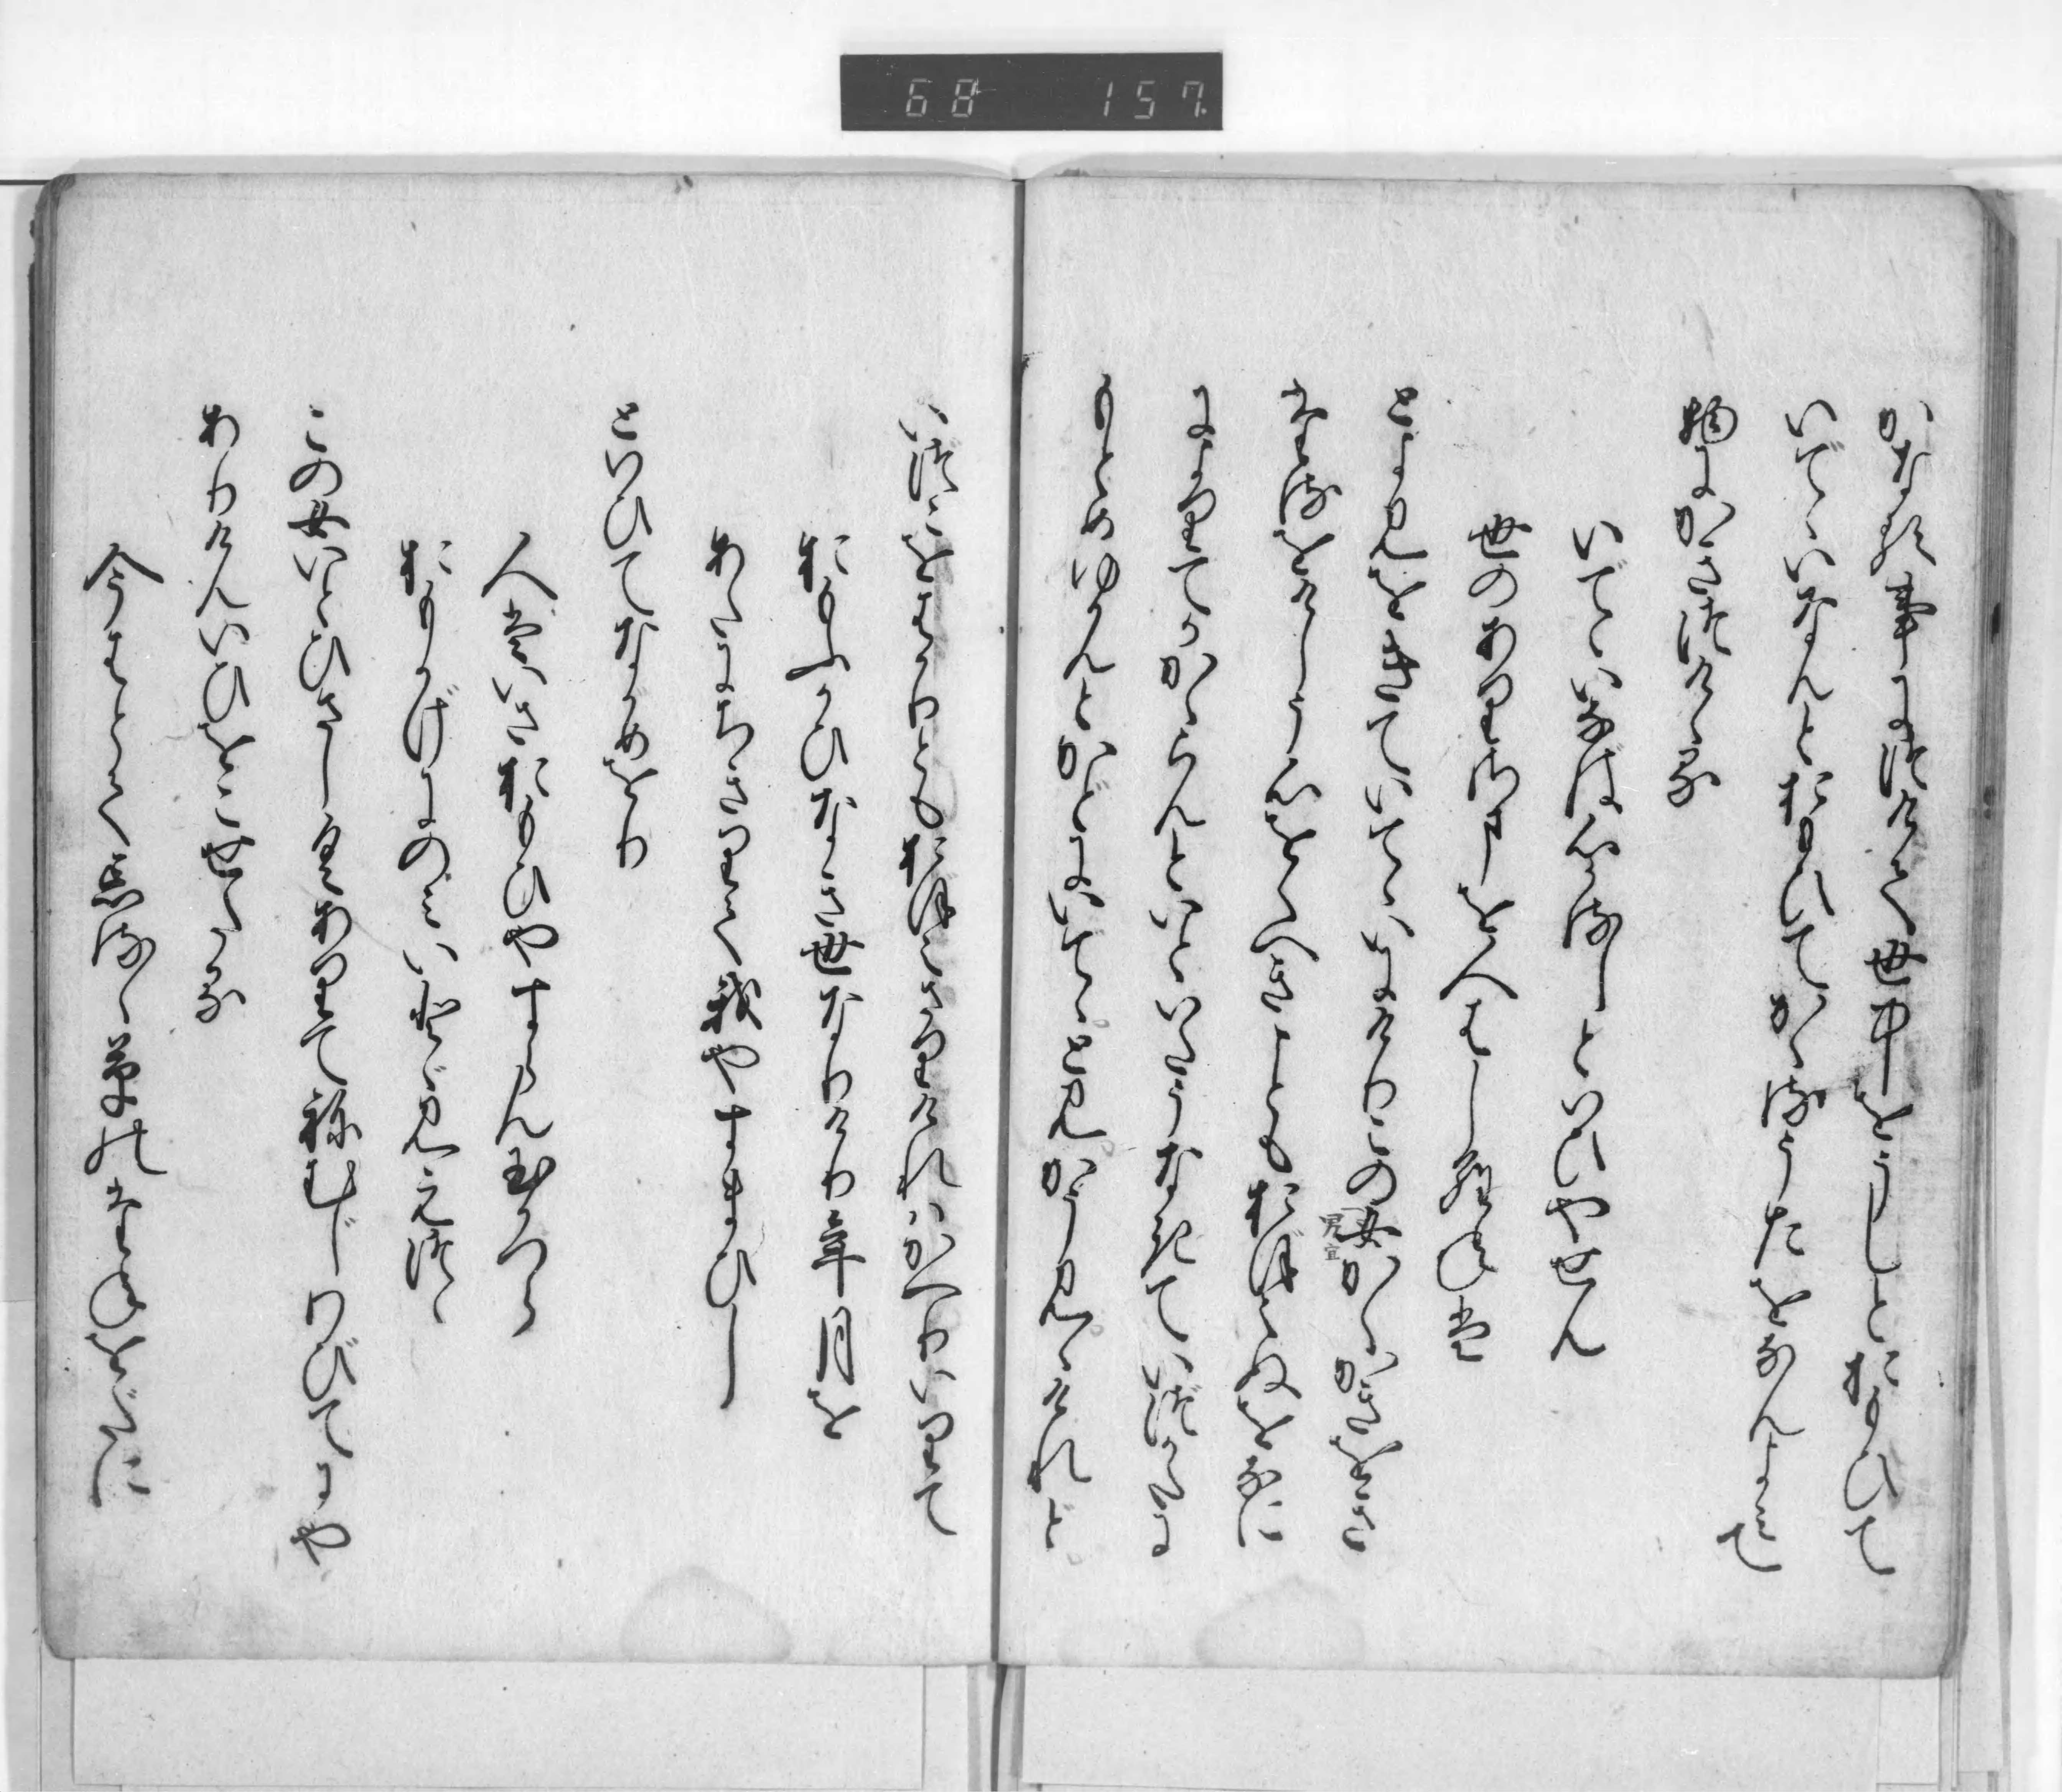 68 157
かなる事にかありけん世中をうしとおもひて
いでゝいなんとおもひてかゝるうたをなんよみて
物にかきつけゝる
いでゝいなば心かるしといひやせん
世のありさまを人はしらねば
とよみをきていでゝいにけりこの女かくかきをき
たるを見てけしう心をくべきこともおぼえぬをなに
によりてかかゝらんといといたうなきていづかたに
もとめゆかんとかどにいでゝと見かう見ゝけれど
いづこをはかりともおぼえざりければかへりいりて
おもふかひなき世なりけり年月を
あだにちぎりて我やすまひし
といひてながめをり
人はいさおもひやすらん玉かづら
おもかげにのみいとゞ見えつゝ
この女いとひさしくありて祢むじわびてにや
ありけんいひをこせたる
今はとてわするゝ草のたねをだに